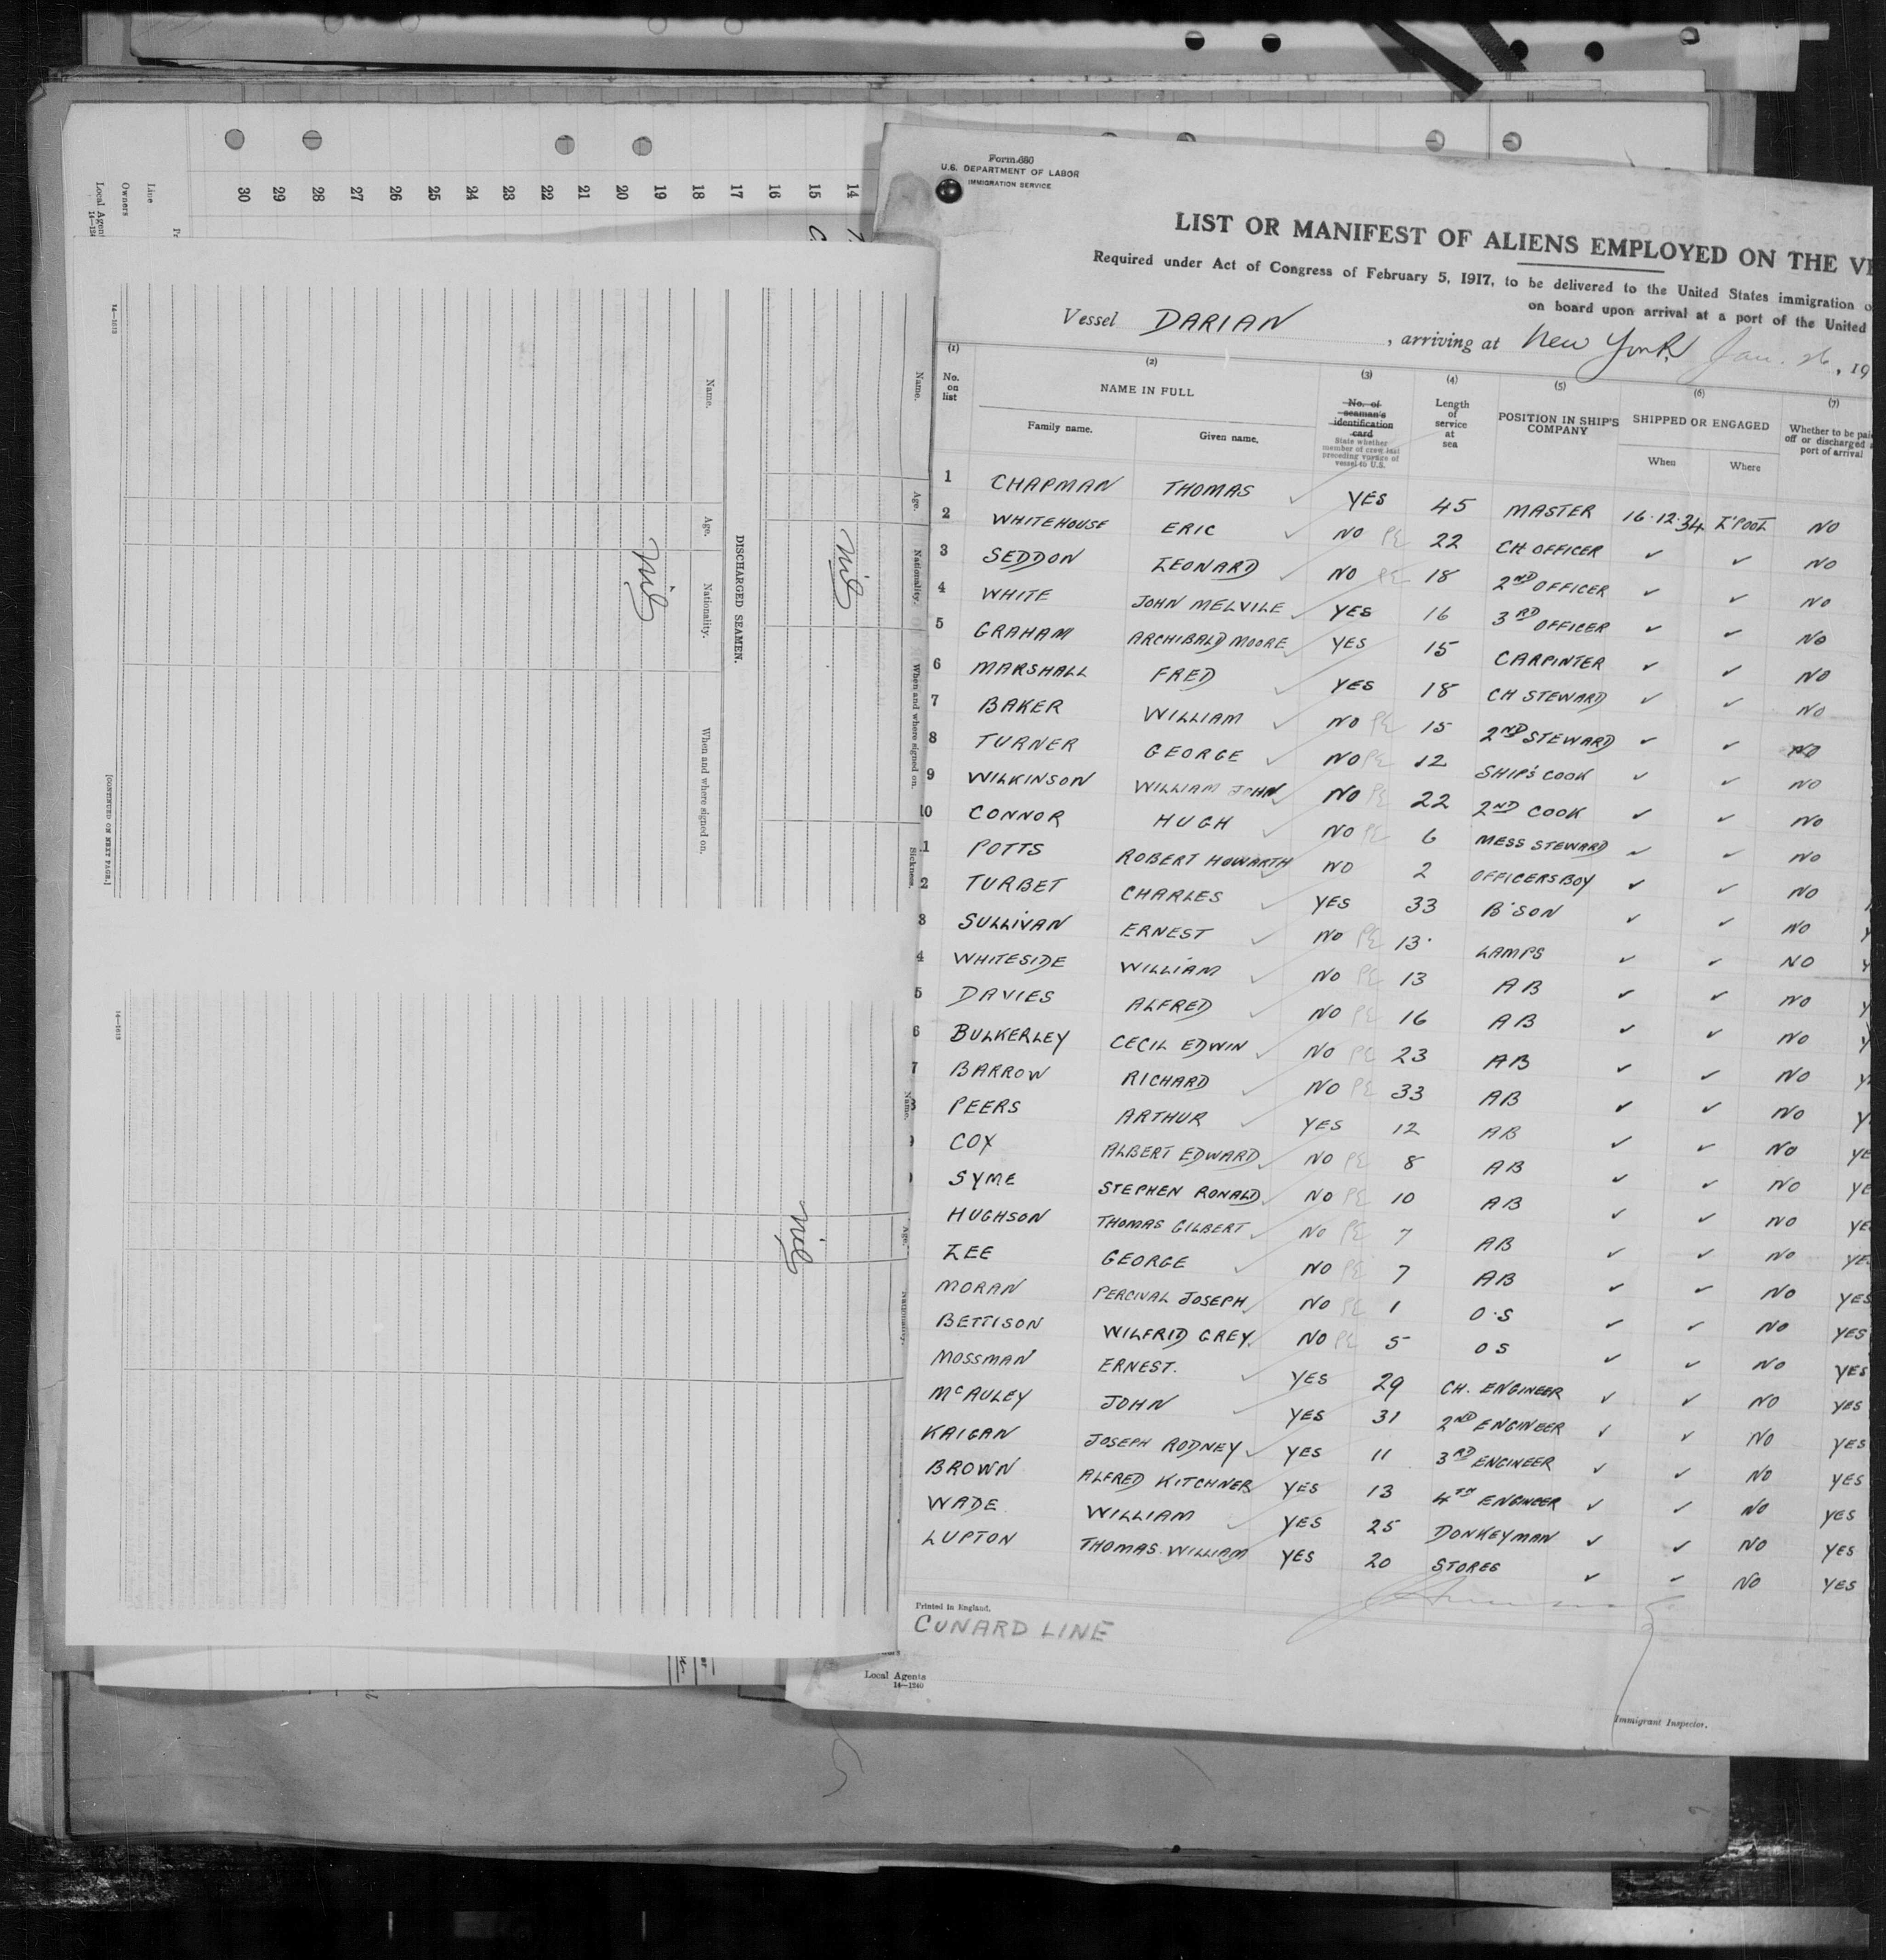 Form 680
U.S. DEPARTMENT OF LABOR
IMMIGRATION SERVICE
LIST OR MANIFEST OF ALIENS EMPLOYED ON THE
Required under Act of Congress of February 5, 1917, to be delivered to the United States immigration
on board upon arrival at a port of the United
Vessel DARIAN , arriving at New York, Jan. 26, 19
(1) (2) (3) (4) (5) (6) (7)
No. on list NAME IN FULL No. of seaman's identification card Length of service at sea POSITION IN SHIP'S COMPANY SHIPPED OR ENGAGED Whether to be paid off or discharged port of arrival
State whether member of crew last preceding voyage of vessel to U.S.
Family name. Given name. When Where
1 CHAPMAN THOMAS ✓ YES 45 MASTER 16.12.34 L'POOL NO
2 WHITEHOUSE ERIC ✓ NO PE 22 CH OFFICER ✓ ✓ NO
3 SEDDON LEONARD ✓ NO PE 18 2ND OFFICER ✓ ✓ NO
4 WHITE JOHN MELVILE ✓ YES 16 3RD OFFICER ✓ ✓ NO
5 GRAHAM ARCHIBALD MOORE ✓ YES 15 CARPINTER ✓ ✓ NO
6 MARSHALL FRED ✓ YES 18 CH STEWARD ✓ ✓ NO
7 BAKER WILLIAM ✓ NO PE 15 2ND STEWARD ✓ ✓ NO
8 TURNER GEORGE ✓ NO PE 12 SHIP'S COOK ✓ ✓ NO
9 WILKINSON WILLIAM JOHN ✓ NO PE 22 2ND COOK ✓ ✓ NO
10 CONNOR HUGH ✓ NO PE 6 MESS STEWARD ✓ ✓ NO
1 POTTS ROBERT HOWARTH ✓ NO 2 OFFICERS BOY ✓ ✓ NO
2 TURBET CHARLES ✓ YES 33 B'SON ✓ ✓ NO
3 SULLIVAN ERNEST ✓ NO PE 13 LAMPS ✓ ✓ NO
4 WHITESIDE WILLIAM ✓ NO PE 13 AB ✓ ✓ NO
5 DAVIES ALFRED ✓ NO PE 16 AB ✓ ✓ NO
6 BULKERLEY CECIL EDWIN ✓ NO PE 23 AB ✓ ✓ NO
7 BARROW RICHARD ✓ NO PE 33 AB ✓ ✓ NO
8 PEERS ARTHUR ✓ YES 12 AB ✓ ✓ NO YE
COX ALBERT EDWARD ✓ NO PE 8 AB ✓ ✓ NO YE
SYME STEPHEN RONALD ✓ NO PE 10 AB ✓ ✓ NO YE
HUGHSON THOMAS GILBERT ✓ NO PE 7 AB ✓ ✓ NO YES
LEE GEORGE ✓ NO PE 7 AB ✓ ✓ NO YES
MORAN PERCIVAL JOSEPH ✓ NO PE 1 O.S ✓ ✓ NO YES
BETTISON WILFRID GREY ✓ NO PE 5 OS ✓ ✓ NO YES
MOSSMAN ERNEST. ✓ YES 29 CH. ENGINEER ✓ ✓ NO YES
McAULEY JOHN ✓ YES 31 2ND ENGINEER ✓ ✓ NO YES
KAIGAN JOSEPH RODNEY ✓ YES 11 3RD ENGINEER ✓ ✓ NO YES
BROWN ALFRED KITCHNER YES 13 4TH ENGINEER ✓ ✓ NO YES
WADE WILLIAM ✓ YES 25 DONKEYMAN ✓ ✓ NO YES
LUPTON THOMAS WILLIAM ✓ YES 20 STORES ✓ ✓ NO YES
Printed in England.
CUNARD LINE
Local Agents
14—1240
Immigrant Inspector.
14 15 16 17 18 19 20 21 22 23 24 25 26 27 28 29 30
Line
Owners
Local Agen
Name. Age. Nationality. When and where signed on. Sickness.
Nil
DISCHARGED SEAMEN.
Name. Age. Nationality. When and where signed on.
Nil
[CONTINUED ON NEXT PAGE.]
Name. Age. Nationality.
Nil